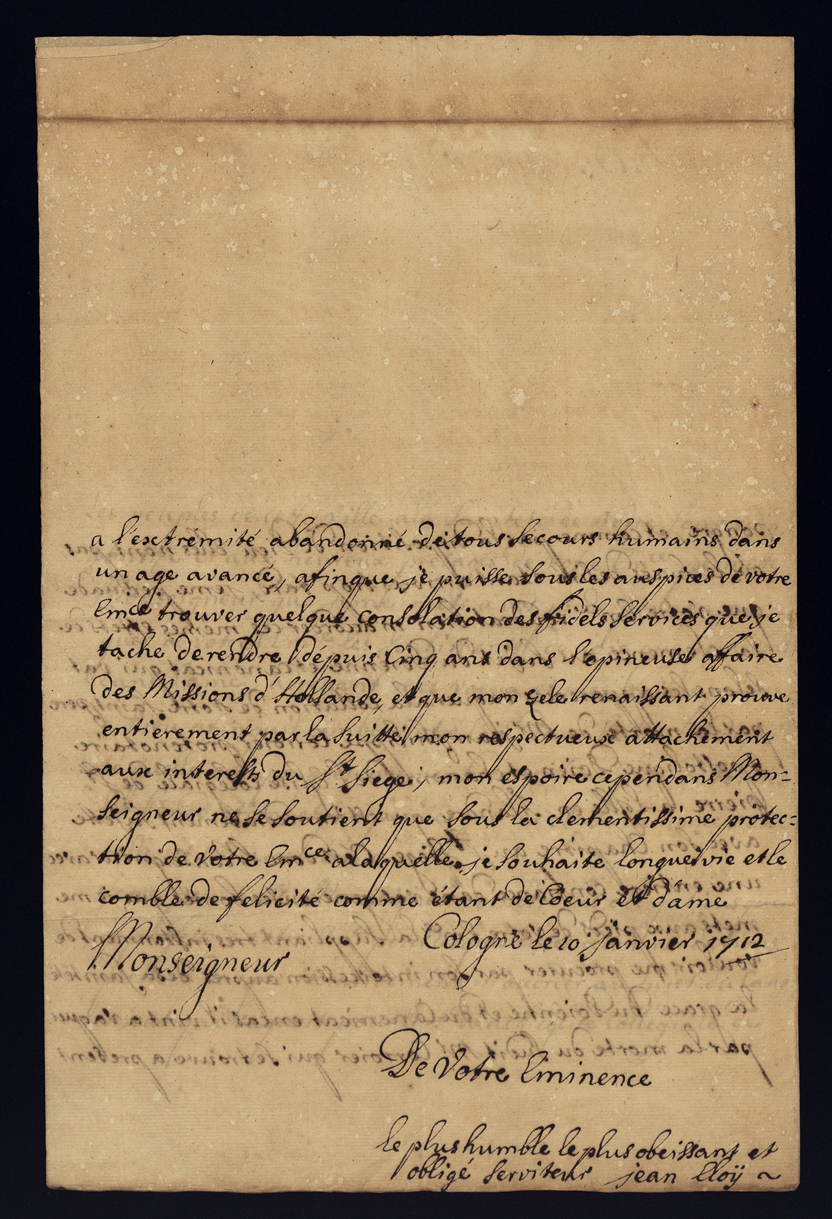 a l'extrémité abandonné de tous secours humains dans
un age avancé, afinque je puisse sous les auspices de votre
Em.ce trouver quelque consolation des fidels services que je
tache de rendre depuis cinq ans dans l'epineuse affaire
des Missions d'Hollande, et que mon zele renaissant prouve
entierement par la suitte mon respectueux attachement
aux interests du St Siege; mon espoire cependans Mon=
seigneur ne se soutient que sous la clementissime protec=
tion de votre Em.ce a laquélle je souhaite longue vie et le
comble de felicité comme étant de Coeur et d'ame
Monseigneur Cologne le 10 janvier 1712
De Votre Eminence
le plus humble le plus obeissant et
obligé serviteur jean Eloÿ